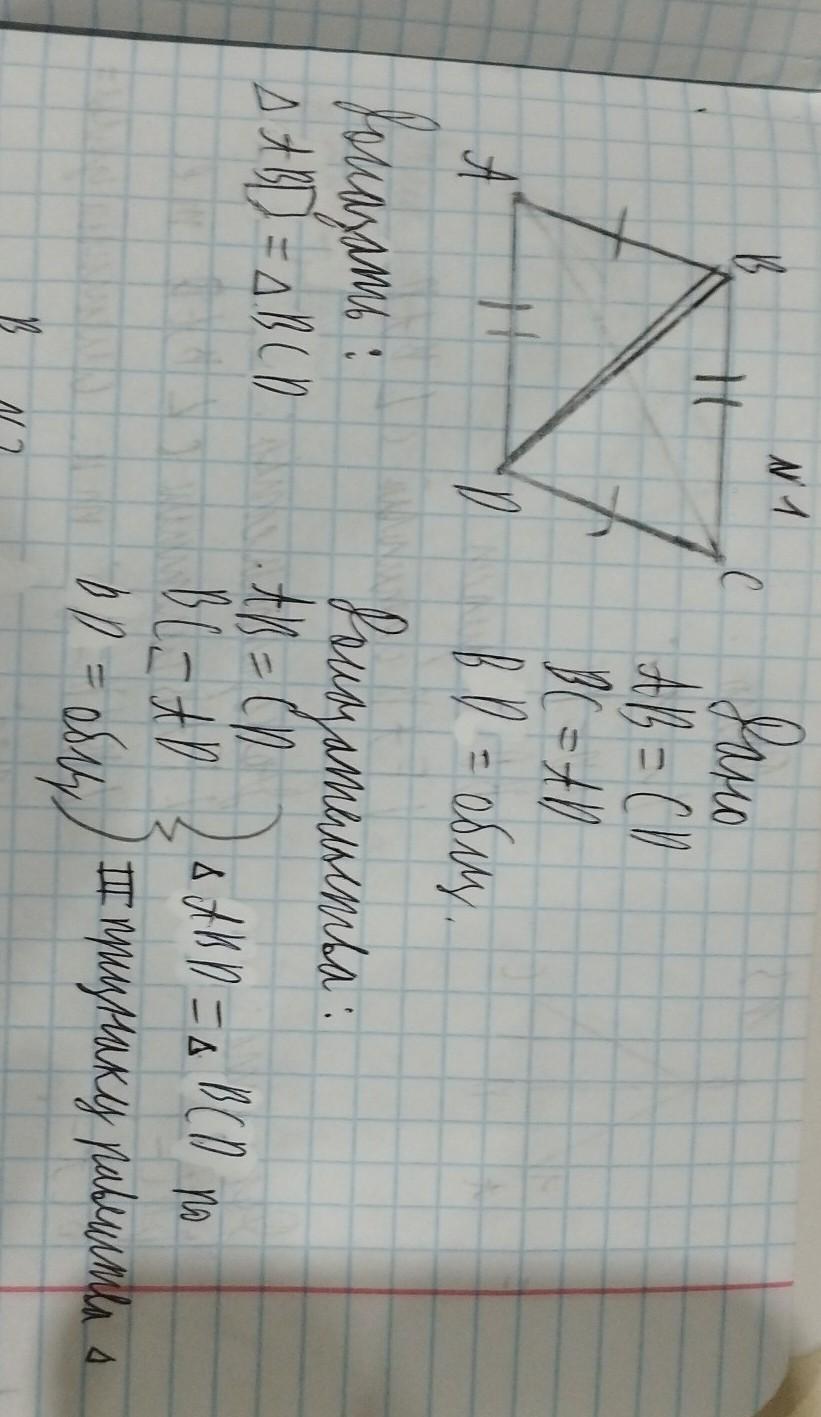 N1
B
C
A
D
Дано
AB = CD
BC = AD
BD = общ.
Доказать:
Δ ABD = Δ BCD
Доказательства:
AB = CD
BC = AD
BD = общ
Δ ABD = Δ BCD по
III признаку равенства Δ
B N2